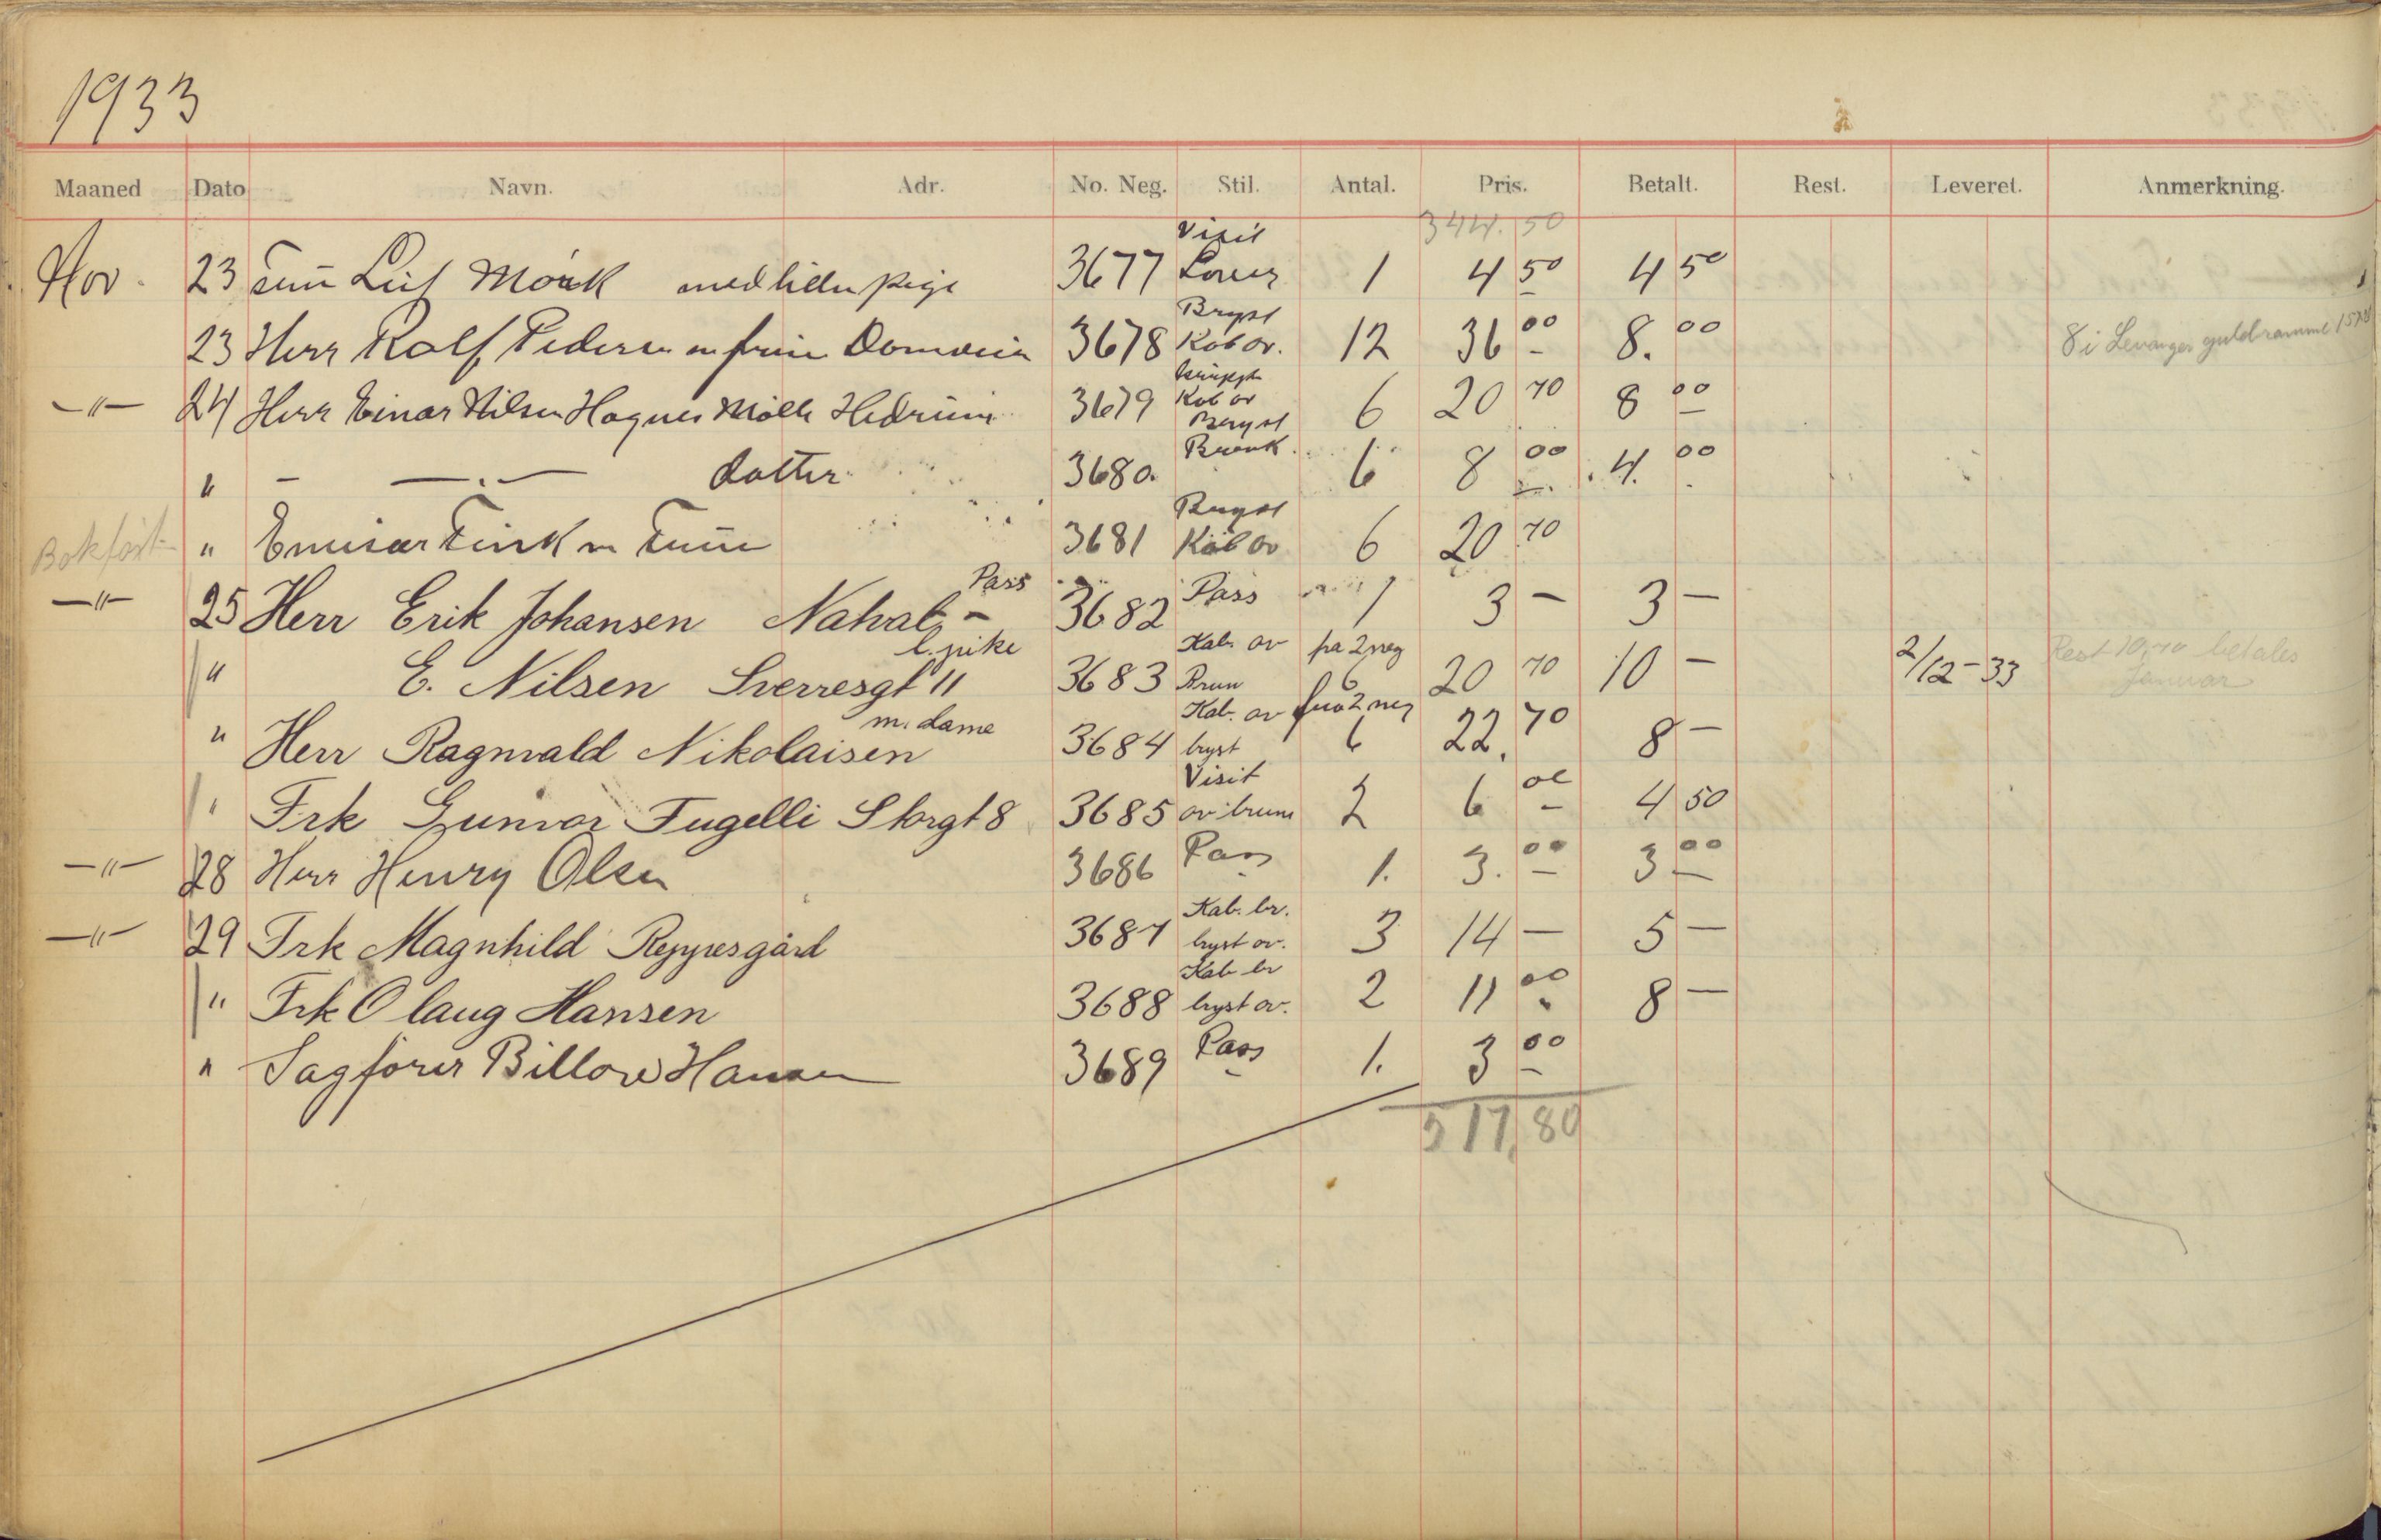 1933
Maaned Dato Navn. Adr. No. Neg. Stil. Antal. Pris. Betalt. Rest. Leveret. Anmerkning.
344.50
Visit
Nov. 23 Leif Mörk med liden pige 3677 1 4 50 4 50
Bryst
23 Herr Rolf Pedersen m fruе 3678 Kab ov. 12 36 00 8. 00 8 i Levanger guldramme
—"— 24 Herr Einar Nilsen Hagnes Mölle Hedrum 3679 Kab ov 6 20 70 8 00
Bryst
" — — . — datter 3680. 6 8 00 4. 00
Bryst
Bokført " Fink m Frue 3681 Kab ov 6 20 70
—"— 25 Herr Erik Johansen Pass 3682 Pass 1 3 — 3 —
l. pike Kab. ov fra 2 neg
" E. Nilsen Sverresgt 11 3683 Brun 6 20 70 10 — 2/12-33 Rest 10,70 betales Januar
m. dame Kab. ov fra 2 neg
" Herr Ragnvald Nikolaisen 3684 bryst 6 22. 70 8 —
Visit
" Frk Gunvor Fugelli Storgt 8 3685 ov brun 2 6 00 4 50
—"— 28 Herr Henry Olsen 3686 Pass 1. 3. 00 3 00
Kab. br.
—"— 29 Frk Magnhild 3687 bryst ov. 3 14 — 5 —
Kab br
" Frk Olaug Hansen 3688 bryst ov. 2 11 00 8 —
" Sagförer Hansen 3689 Pass 1. 3 00
517,80